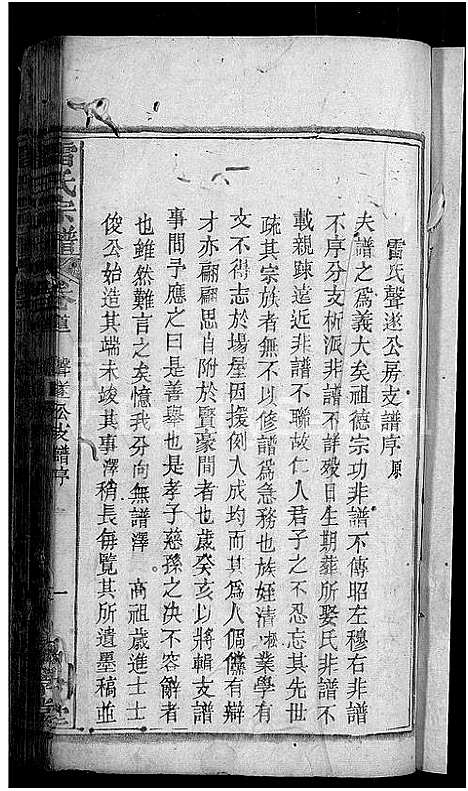 雷氏聲遂公房支譜序原
夫譜之爲義大矣祖德宗功非譜不傳昭左穆右非譜
不序分支析派非譜不詳歿日生期葬所娶氏非譜不
載親踈遠近非譜不聯故仁人君子之不忍忘其先世
疏其宗族者無不以修譜爲急務也族姪清淞業學有
文不得志於場屋因援例入成均而其爲人倜儻有辯
才亦翩翩思自附於賢豪間者也歲癸亥以將輯支譜
事問予應之曰是善舉也是孝子慈孫之决不容辭者
也雖然難言之矣憶我分向無譜澤 高祖歲進士士
俊公始造其端未竣其事澤稍長每覽其所遺墨稿並
雷氏宗譜
聲遂公支譜序
一